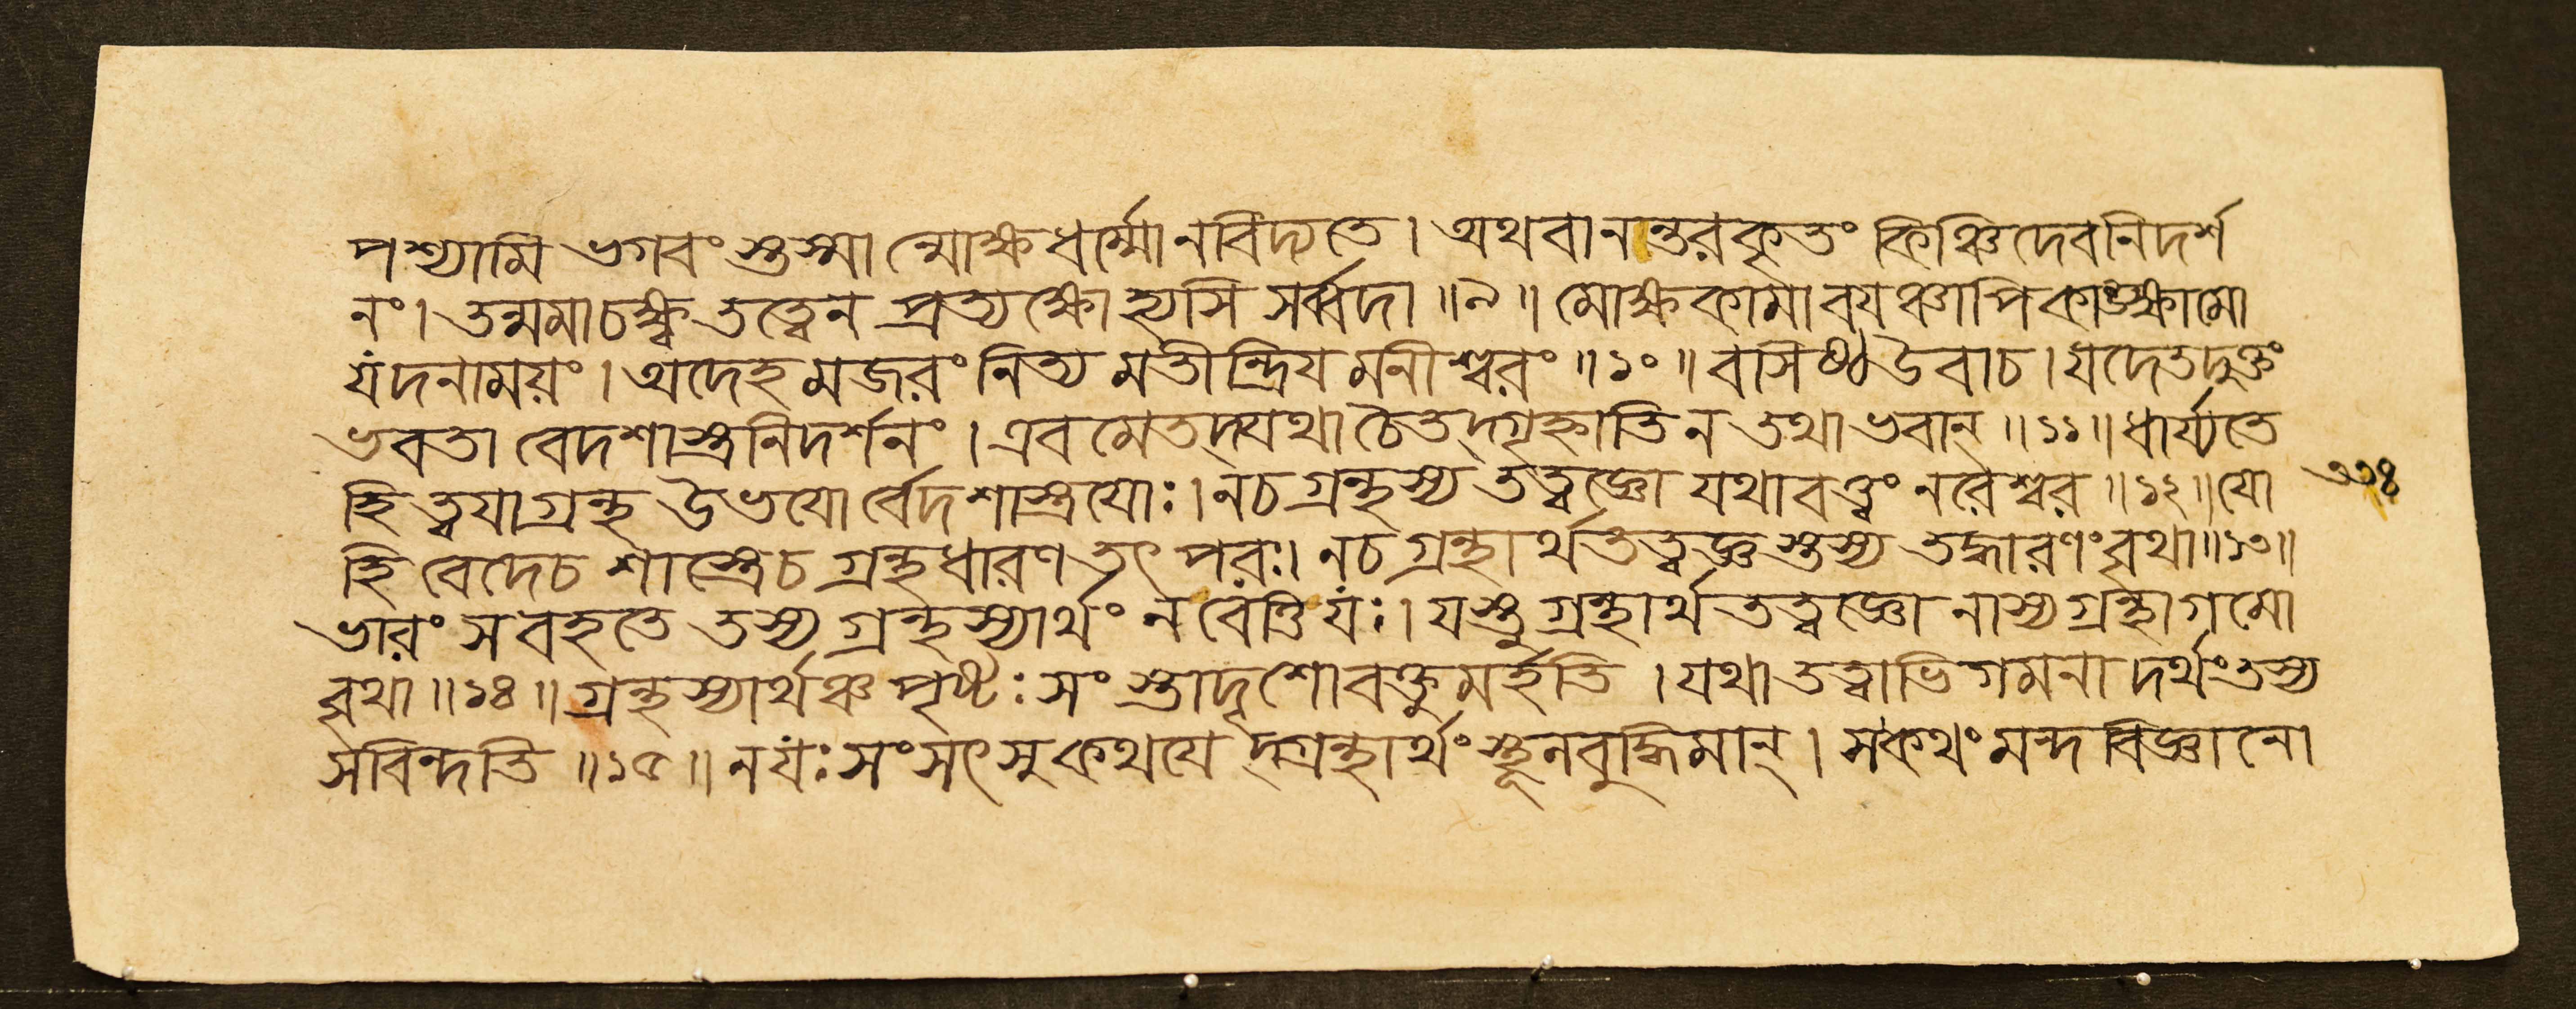 পশ্যামি ভগবংস্তুস্মা ন্মোক্ষধর্ম্মোনবিদ্যতে। অথবানন্তরকৃতং কিঞ্চিদেবনিদর্শ
নং। তন্মমাচক্ষ্ব তত্ত্বেন প্রত্যক্ষোহ্যসি সর্ব্বদা॥৯॥ মোক্ষকামাবযঞ্চাপিকাঙ্ক্ষামো
যদনাময়ং। অদেহমজরং নিত্য মতীন্দ্রিয মনীশ্বরং॥১০॥ বাসিষ্ঠউবাচ। যদেতদুক্তং
ভবতা বেদশাস্ত্রনিদর্শনং। এবমেতদ্যথা চৈতদ্গৃহ্নাতি ন তথা ভবান্॥১১॥ ধার্য্যতে
হি ত্বযাগ্রন্থ উভযো র্বেদশাস্ত্রযোঃ। নচগ্রন্থস্য তত্ত্বজ্ঞো যথাবত্ত্বং নরেশ্বর॥১২॥ যো ৩৩৪
হি বেদেচ শাস্ত্রেচ গ্রন্থধারণতৎপরঃ। নচগ্রন্থার্থতত্ত্বজ্ঞস্তস্য তদ্ধারণংবৃথা॥১৩॥
ভারং সবহতে তস্য গ্রন্থস্যার্থং নবেত্তিযঃ। যস্তুগ্রন্থার্থতত্ত্বজ্ঞো নাস্যগ্রন্থাগমো
বৃথা॥১৪॥ গ্রন্থস্যার্থঞ্চ পৃষ্টঃসংস্তাদৃশোবক্তুমর্হতি। যথাতত্ত্বাভিগমনাদর্থংতস্য
সবিন্দতি॥১৫॥ নযঃসংসৎসুকথযেদ্গ্রন্থার্থংস্থূনবুদ্ধিমান্। সকথং মন্দবিজ্ঞানো